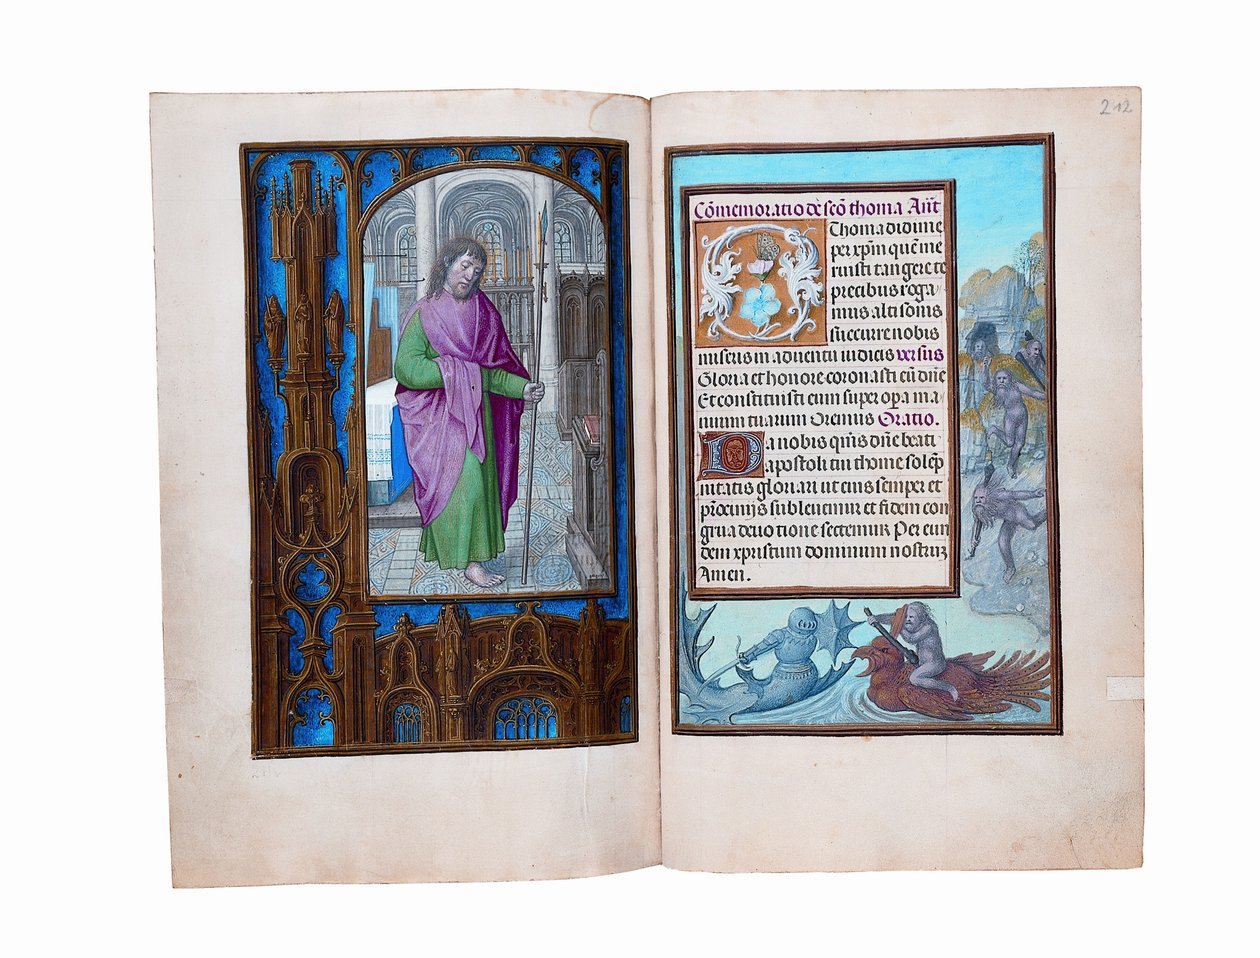 212
Cōmemoratio de scō thoma Añt
O Thoma didime
per xp̄m quē me
ruisti tangere te
precibus roga
mus altisonis
succurre nobis
miseris in aduentu iudicis versus
Gloria et honore coronasti eū dn̄e
Et constituisti eum super opa ma
nuum tuarum Oremus Oratio.
Da nobis qm̄s dn̄e beati
apostoli tui thome solēp
nitatis gloriari ut eius semper et
prōcinijs subleuemur et fidem con
grua deuotione sectemur Per eun
dem xpristum dominum nostrum
Amen.